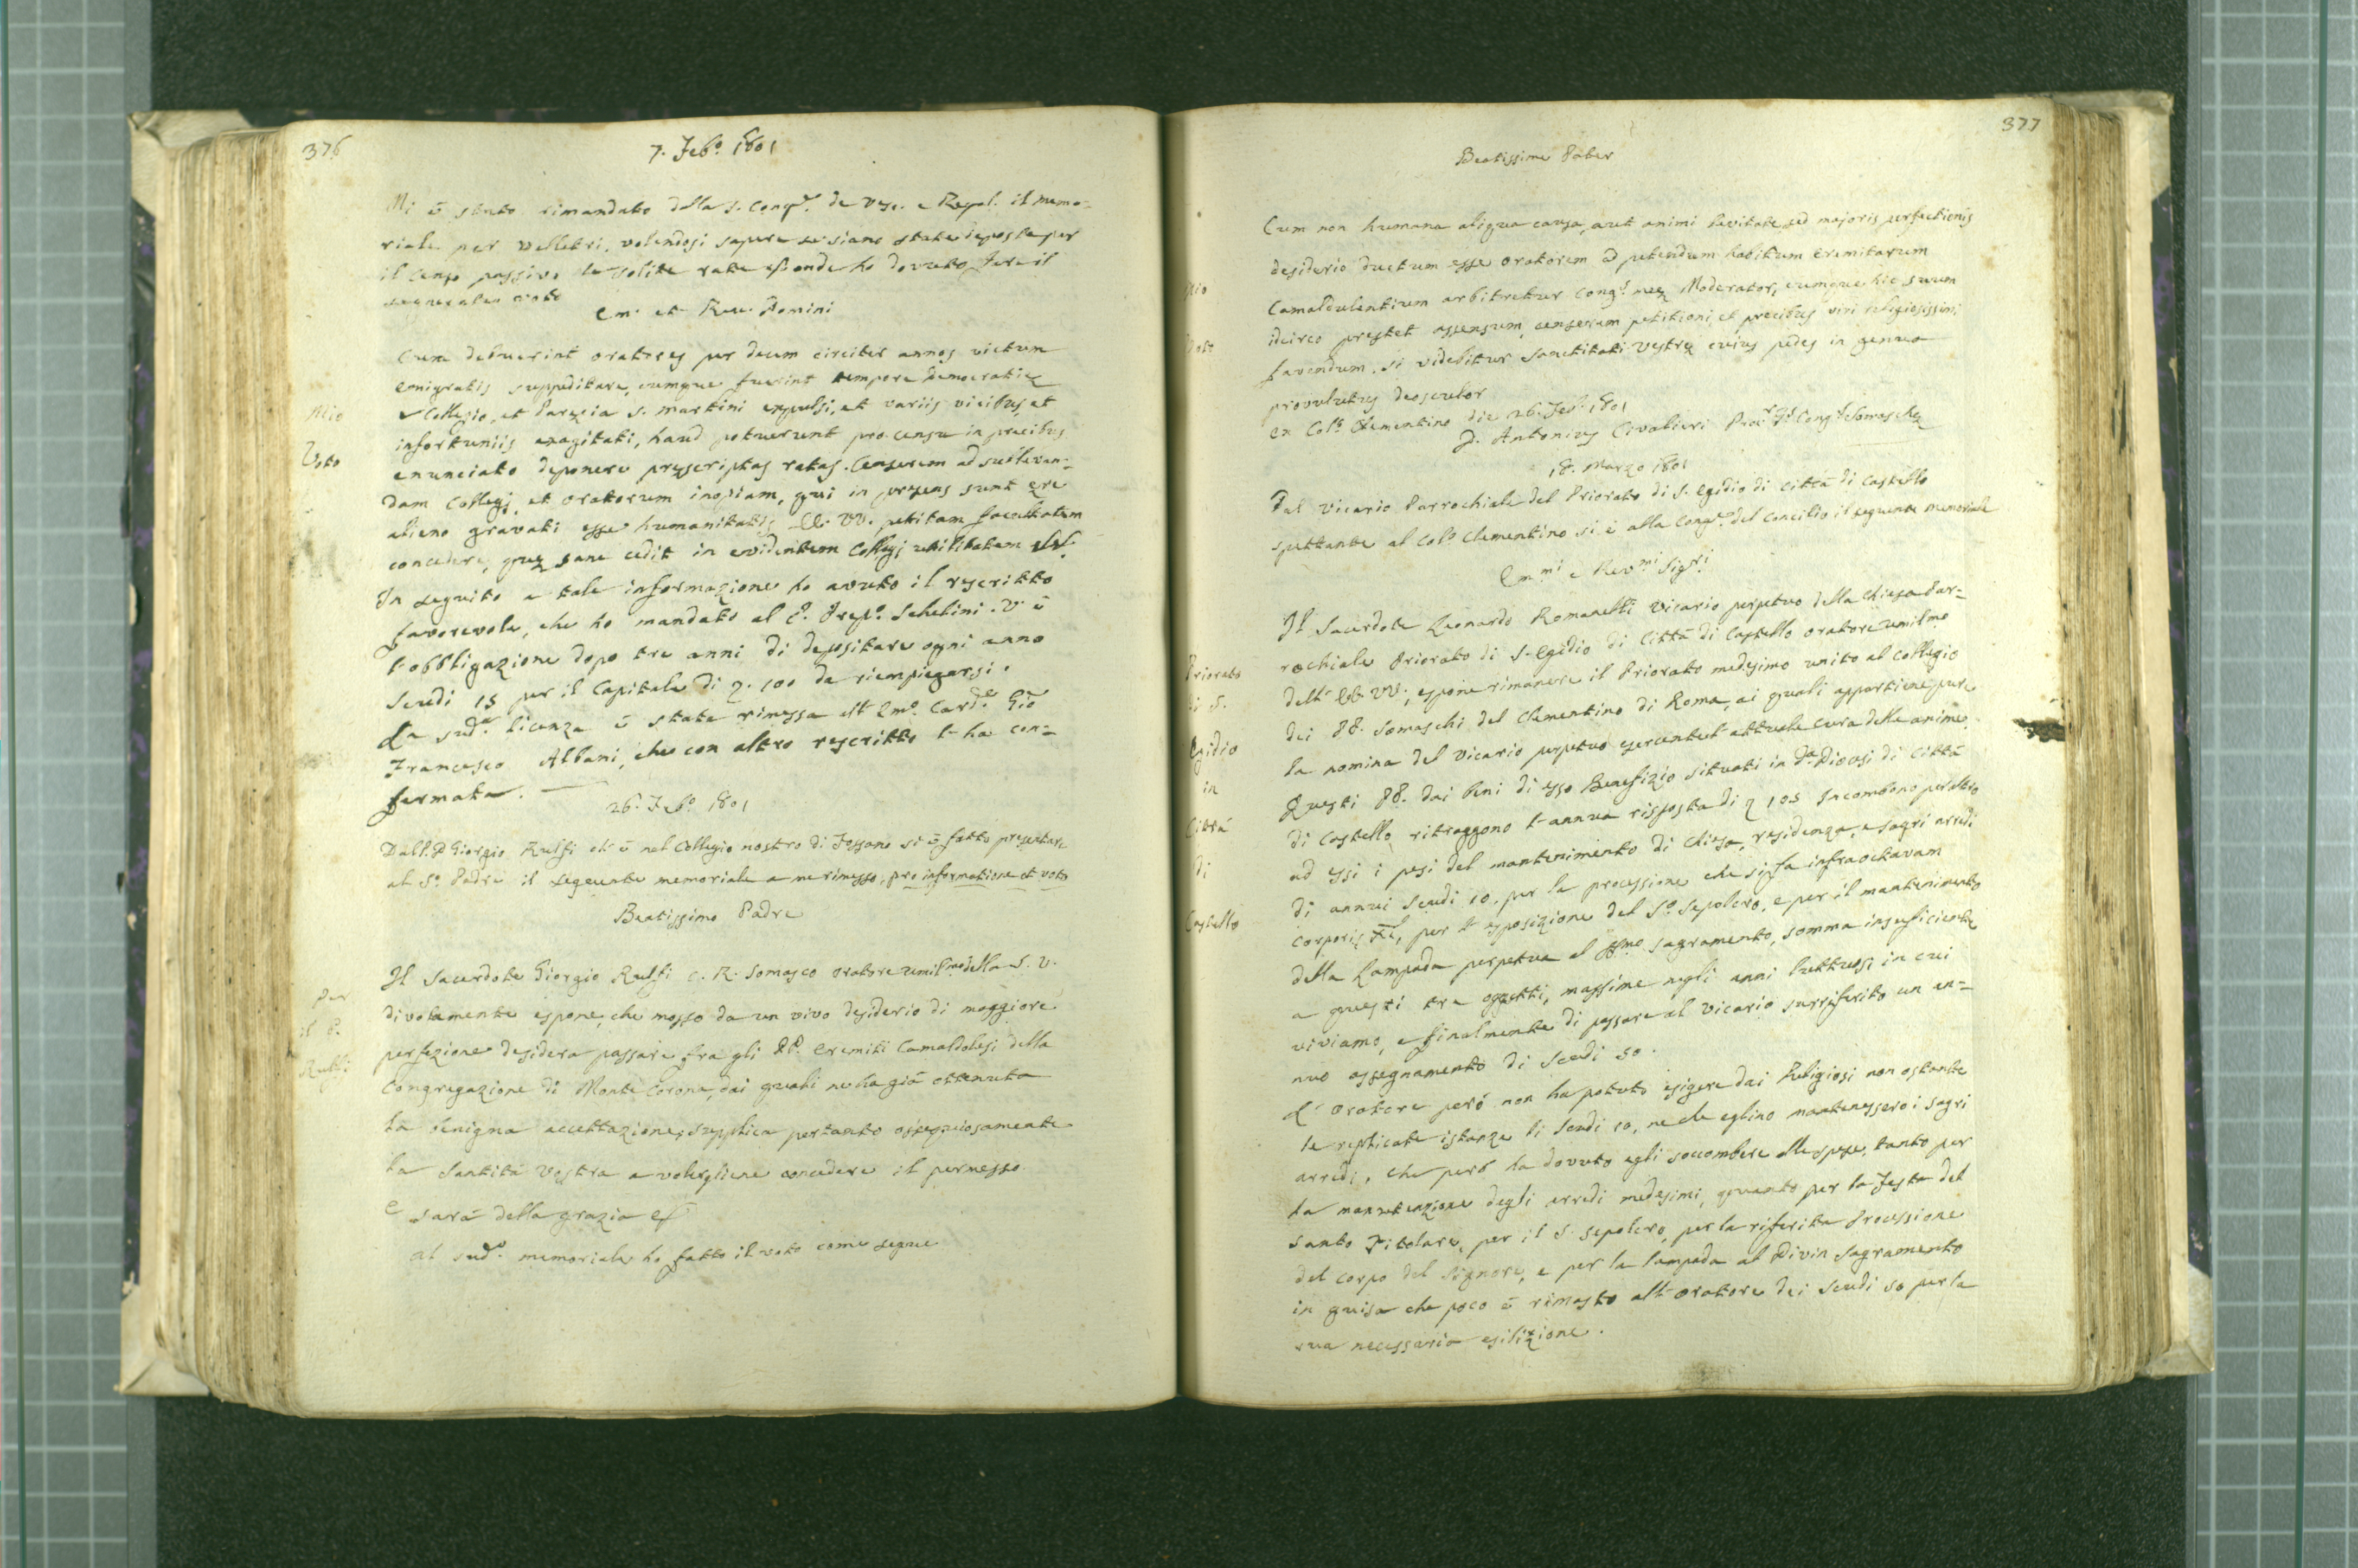 376
7. Feb.º 1801
Mi è stato rimandato dalla S. Cong.e de Vesc. e Regol. il memo=
riale per Velletri, volendosi sapere se siano state deposte per
il censo passivo le solite rate onde ho dovuto fare il
seguente voto
Em. et Rev. Domini
Mio
Voto
Cum debuerint oratores per decem circiter annos victum
emigratis suppeditare, cumque fuerint tempore Democratiæ
Collegio, et Paræcia S. Martini expulsi, et variis vicibus, et
infortuniis exagitati, haud potuerunt pro censu in precibus
enunciato deponere præscriptas ratas. Censerem ad sublevan=
dam Collegi, et oratorum inopiam, qui in præsens sunt ære
alieno gravati esse humanitatis EE. VV. petitam facultatem
concedere, quæ sane cedit in evidentem Collegi utilitatem
In seguito a tale informazione ho avuto il rescritto
favorevole, che ho mandato al P. Prep.º Schelini. V' è
l'obbligazione dopo tre anni di depositare ogni anno
Scudi 15 per il Capitale di 100 da riempiegarsi.
La sud.a licenza è stata rimessa all' Emo. Card.e Gio
Francesco Albani, che con altro rescritto l' ha con=
fermata.
26. Feb.º 1801
Dal P. D. Giorgio Ruffi ch' è nel Collegio nostro di Fossano si è fatto presentare
al S.º Padre il seguente memoriale a me rimesso, pro informatione et voto
Beatissimo Padre
Per
il P.
Ruffi
Il Sacerdote Giorgio Ruffi C. R. Somasco oratore umil.mo della S. V.
divotamente espone, che mosso da un vivo desiderio di maggiore
perfezione desidera passare fra gli PP. Eremiti Camaldolesi della
Congregazione di Monte Corona, dai quali ne ha già ottenuta
la benigna accettazione; supplica pertanto ossequiosamente
la Santità Vostra a volergliene concedere il permesso.
E sarà della grazia
Al sud.º memoriale ho fatto il voto come segue
377
Beatissime Pater
Mio
Voto
Cum non humana aliqua causa, aut animi levitate, sed majoris perfectionis
desiderio ductum esse oratorem ad petendum habitum Eremitarum
Camaldulentium arbitretur Cong.s meæ Moderator, cumque hic suum
idcirco præstet assensum, censerem petitioni, et precibus viri religiosissimi
favendum, si videbitur Sanctitati Vestræ cuius pedes in genua
provolutus deosculor
Ex Col.º Clementino die 26. Feb. 1801
D. Antonius Civalieri Proc.r G.lis Cong.s Somaschæ
18. Marzo 1801
Dal Vicario Parrochiale del Priorato di S. Egidio di Città di Castello
spettante al Col.º Clementino si è alla Cong.e del Concilio il seguente memoriale
Em.mi e Rev.mi Sig.ri
Priorato
di S.
Egidio
in
Città
di
Castello
Il Sacerdote Leonardo Romanelli Vicario perpetuo della Chiesa Par=
rochiale Priorato di S. Egidio di Città di Castello oratore umilmo
dell' EE. VV., espone rimanere il Priorato medesimo unito al Collegio
dei PP. Somaschi del Clementino di Roma, ai quali appartiene pure
la nomina del Vicario perpetuo esercente l' attuale cura delle anime.
Questi PP. dai beni di esso Benefizio situati in d.a Diocesi di Città
di Castello ritraggono l' annua risposta di 105 Incombono peraltro
ad essi i pesi del mantenimento di Chiesa, residenza, e sagri arredi
di annui Scudi 10. per la processione che si fa infraoctavam
Corporis Xti, per l' esposizione del S.º Sepolcro, e per il mantenimento
della Lampada perpetua al SSmo Sagramento, somma insufficiente
a questi tre oggetti, massime negli anni luttuosi in cui
viviamo, e finalmente di passare al Vicario surriferito un an=
nuo assegnamento di Scudi 50.
L' Oratore però non ha potuto esigere dai Religiosi non ostante
le replicate istanze li Scudi 10, ne che eglino mantenessero i sagri
arredi, che però ha dovuto egli soccombere alle spese, tanto per
la manutenzione degli arredi medesimi, quanto per la Festa del
Santo Titolare, per il S. Sepolcro, per la riferita Processione
del Corpo del Signore, e per la lampada al Divin Sagramento
in guisa che poco è rimasto all' Oratore dei Scudi 50 per la
sua necessaria